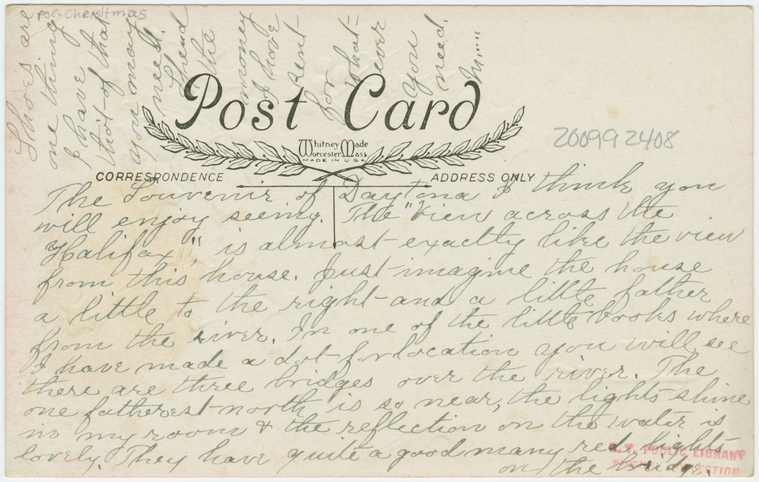 poc. Christmas
Shoes are
one thing
I have
tho't of that
you may
need.
Spend
the
money
I have
sent
for
what-
ever
you
need.
M....
Post Card
Whitney Made
Worcester Mass
MADE IN U.S.A.
200992408
CORRESPONDENCE
ADDRESS ONLY
The Souvenir of Daytona I think you
will enjoy seeing. The "View across the
Halifax," is almost exactly like the view
from this house. Just imagine the house
a little to the right and a little father
from the river. In one of the little books where
I have made a dot for location you will see
there are three bridges over the river. The
one fatherest north is so near, the lights shine
in my room & the reflection on the water is
lovely. They have quite a good many red lights
on the bridge.
N.Y. PUBLIC LIBRARY
PICTURE COLLECTION